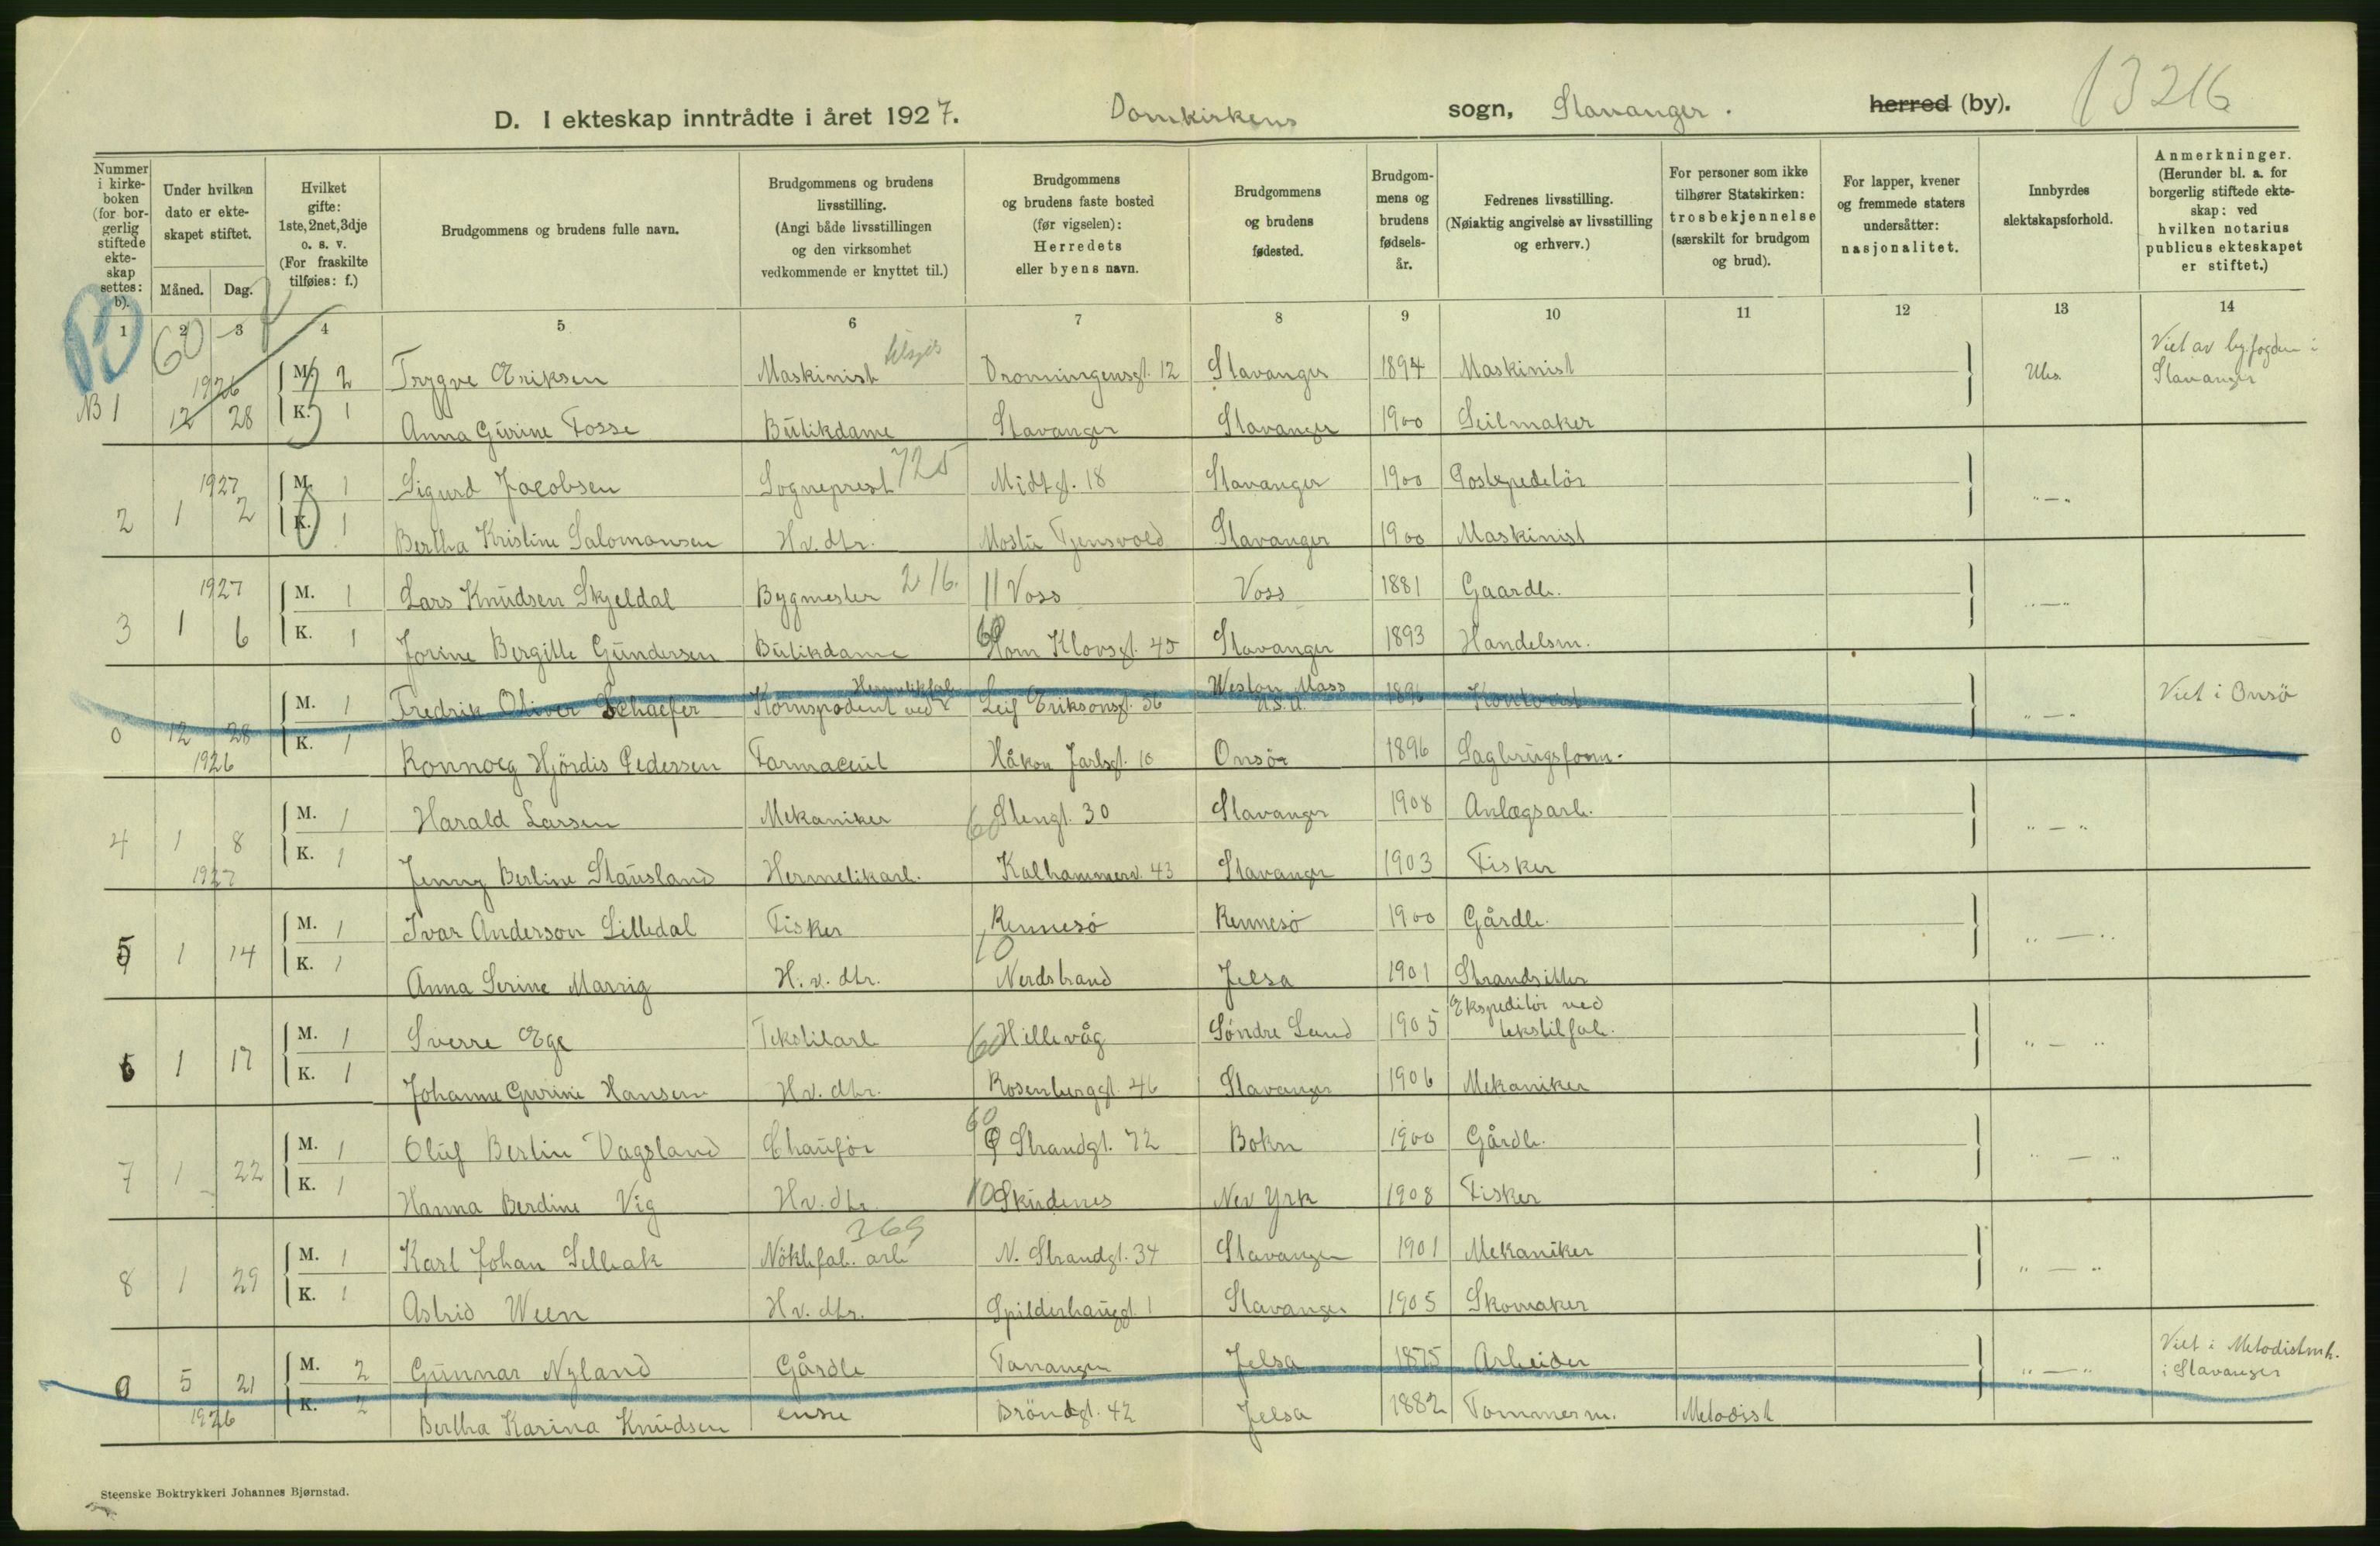 D. I ekteskap inntrådte i året 1927. Domkirkens sogn, Stavanger. herred (by). 13216
Nummer i kirke-boken (for bor-gerlig stiftede ekte-skap settes: b).
Under hvilken dato er ekte-skapet stiftet.
Måned. Dag.
Hvilket gifte: 1ste, 2net, 3dje o. s. v. (For fraskilte tilføies: f.)
Brudgommens og brudens fulle navn.
Brudgommens og brudens livsstilling. (Angi både livsstillingen og den virksomhet vedkommende er knyttet til.)
Brudgommens og brudens faste bosted (før vigselen): Herredets eller byens navn.
Brudgommens og brudens fødested.
Brudgom-mens og brudens fødsels-år.
Fedrenes livsstilling. (Nøiaktig angivelse av livsstilling og erhverv.)
For personer som ikke tilhører Statskirken: trosbekjennelse (særskilt for brudgom og brud).
For lapper, kvener og fremmede staters undersåtter: nasjonalitet.
Innbyrdes slektskapsforhold.
Anmerkninger. (Herunder bl. a. for borgerlig stiftede ekte-skap: ved hvilken notarius publicus ekteskapet er stiftet.)
1 2 3 4 5 6 7 8 9 10 11 12 13 14
60
1926 M. 2 Trygve Eriksen Maskinist Dronningensgt. 12 Stavanger 1894 Maskinist Ubs. Viet av byfogden i Stavanger
NB 1 12 28 K. 1 Anna Gurine Fosse Butikdame Stavanger Stavanger 1900 Seilmaker
1927 M. 1 Sigurd Jacobsen Sogneprest 725 Midtgt. 18 Stavanger 1900 Postexpeditør " — "
2 1 2 K. 1 Bertha Kristine Salomonsen Hv. dtr. Mostu Tjensvold Stavanger 1900 Maskinist
1927 M. 1 Lars Knudsen Skjeldal Bygmester 216. 11 Voss Voss 1881 Gaardb. " — "
3 1 6 K. 1 Jorine Bergitte Gundersen Butikdame 60 Tom Klovsgt. 45 Stavanger 1893 Handelsm.
M. 1 Fredrik Oliver Schaefer Kornspodent ved Hermetikfab. Leif Eriksonsgt. 36 Weston Mass U.S.A. 1896 " — " Viet i Onsö
0 12 28 K. 1 Ronnoeg Hjördis Pedersen Farmaceut Håkon Jarlsgt. 10 Onsö 1896 Sagbrugsform.
1926
M. 1 Harald Larsen Mekaniker 60 Stengt. 30 Stavanger 1908 Anlægsarb. " — "
4 1 8 K. 1 Jenny Berline Stausland Hermetikarb. Kalhammerv. 43 Stavanger 1903 Fisker
1927
M. 1 Ivar Anderson Lilledal Fisker Rennesö Rennesö 1900 Gårdb. " — "
5 1 14 K. 1 Anna Serine Marvig H. v. dtr. 10 Nerdstrand Jelsa 1901 Strandsitter
M. 1 Sverre Ege Tekstilarb 60 Hillevåg Söndre Land 1905 Ekspeditör ved tekstilfab. " — "
6 1 17 K. 1 Johanne Gurine Hansen Hv. dtr. Rosenberggt. 46 Stavanger 1906 Mekaniker
M. 1 Oluf Bertin Vagsland Chauför 60 Strandgt. 72 Bokn 1900 Gårdb. " — "
7 1 22 K. 1 Hanna Berdine Vig Hv. dtr 10 Skudenes New Yrk 1908 Fisker
M. 1 Karl Johan Selbak Nöklefab. arb 369 N. Strandgt. 34 Stavanger 1901 Mekaniker " — "
8 1 29 K. 1 Astrid Ween Hv. dtr. Spilderhauggt. 1 Stavanger 1905 Skomaker
M. 2 Gunnar Nyland Gårdb Tananger Jelsa 1875 Arbeider " — " Viet i Metodistmk. i Stavanger
0 5 21 K. 2 Bertha Karina Knudsen enke Bröndgt. 42 Jelsa 1882 Tommerm. Metodist
1926
Steenske Boktrykkeri Johannes Bjørnstad.